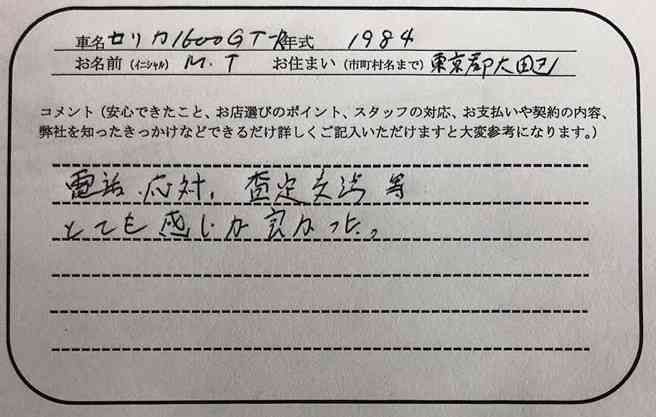 車名 セリカ1600GT-R 年式 1984
お名前(イニシャル) M.T お住まい(市町村名まで) 東京都大田区
コメント(安心できたこと、お店選びのポイント、スタッフの対応、お支払いや契約の内容、
弊社を知ったきっかけなどできるだけ詳しくご記入いただけますと大変参考になります。)
電話応対、査定交渉等
とても感じが良かった。